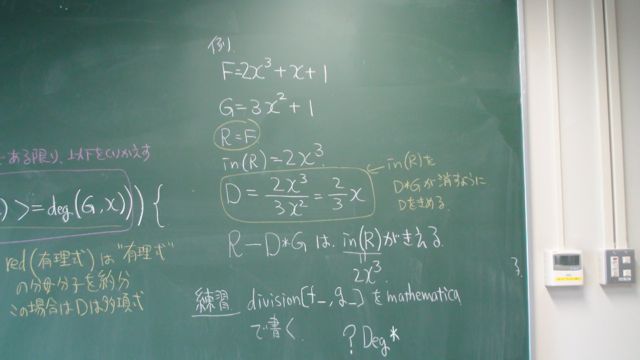 例
F=2x³+x+1
G=3x²+1
R=F
in(R)=2x³
D=2x³/3x²=2/3x
←in(R)を
D*Gが消すように
Dをきめる.
R-D*Gは, in(R)がきえる.
2x³
ある限り,上以下をくりかえす
) >=deg(G,x))) {
red(有理式)は"有理式"
の分母分子を約分
この場合はDは多項式
練習 division[f_,g_]をmathematica
で書く. ?Deg*